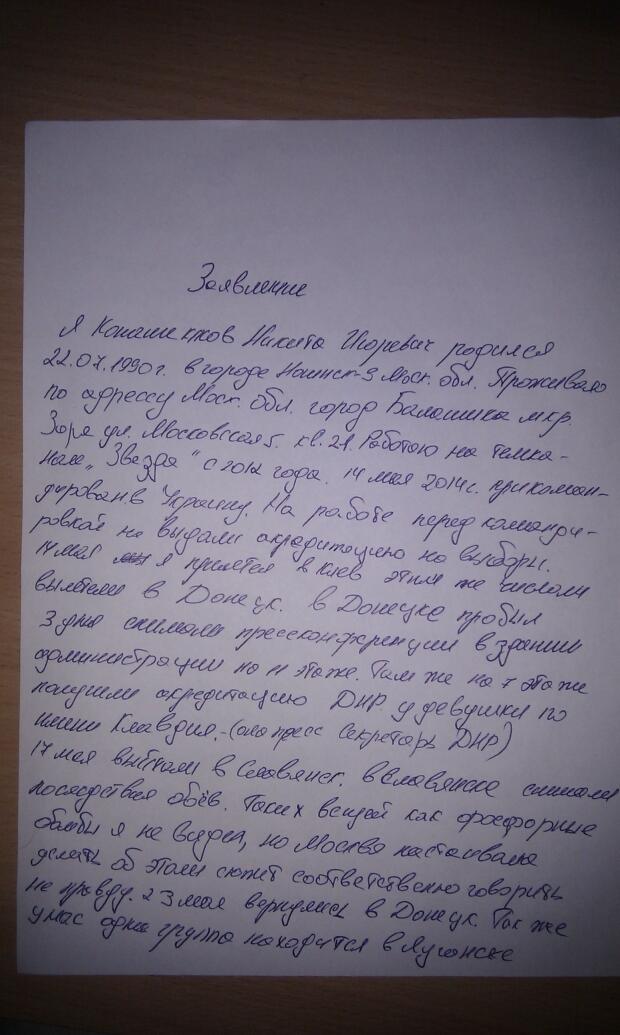 Заявление
Я Конашенков Никита Игоревич родился
22.07.1990г. в городе Ногинск-9 Моск. обл. Проживаю
по адрессу Моск. обл. город Балашиха мкр.
Заря ул. Московская 5. кв. 21. Работаю на телека-
нале „Звезда“ с 2012 года. 14 мая 2014г. прикоман-
дирован в Украину. На работе перед команди-
ровкой не выдали акредитацию на выборы.
14 мая я прилетел в Киев этим же числом
вылетели в Донецк. в Донецке пробыл
3 дня снимали прессконференции в здании
администрации на 11 этаже. Там же на 7 этаже
получили акредитацию ДНР у девушки по
имени Клавдия.-(она пресс Секретарь ДНР)
17 мая выехали в Славянск. в Славянске снимали
последствия обоёв. Таких вещей как фосфорные
бомбы я не видел, но Москва настаивала
делать об этом сюжет соответственно говорить
не правду. 23 мая вернулись в Донецк. Так же
у нас одна группа находится в Луганске